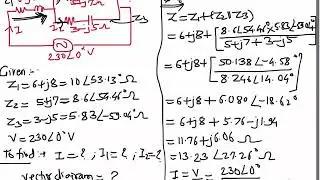 3-j5Ω
Z3
I
230∠0°V
Given:-
Z1=6+j8=10∠53.13°Ω
Z2=5+j7=8.6∠54.46°Ω
Z3=3-j5=5.83∠-59.04°Ω
V=230∠0°V
To find: I=? ; I1=? ; I2=?
vector diagram = ?
Z=Z1+(Z2||Z3)
=6+j8+[8.6∠54.46°×5.83∠-59.04°
5+j7+3-j5]
=6+j8+[50.138∠-4.58°
8.246∠14.04°]
=6+j8+6.080∠-18.62°
=6+j8+5.76-j1.94
=11.76+j6.06Ω
=13.23∠27.26°Ω
I=V=230∠0°